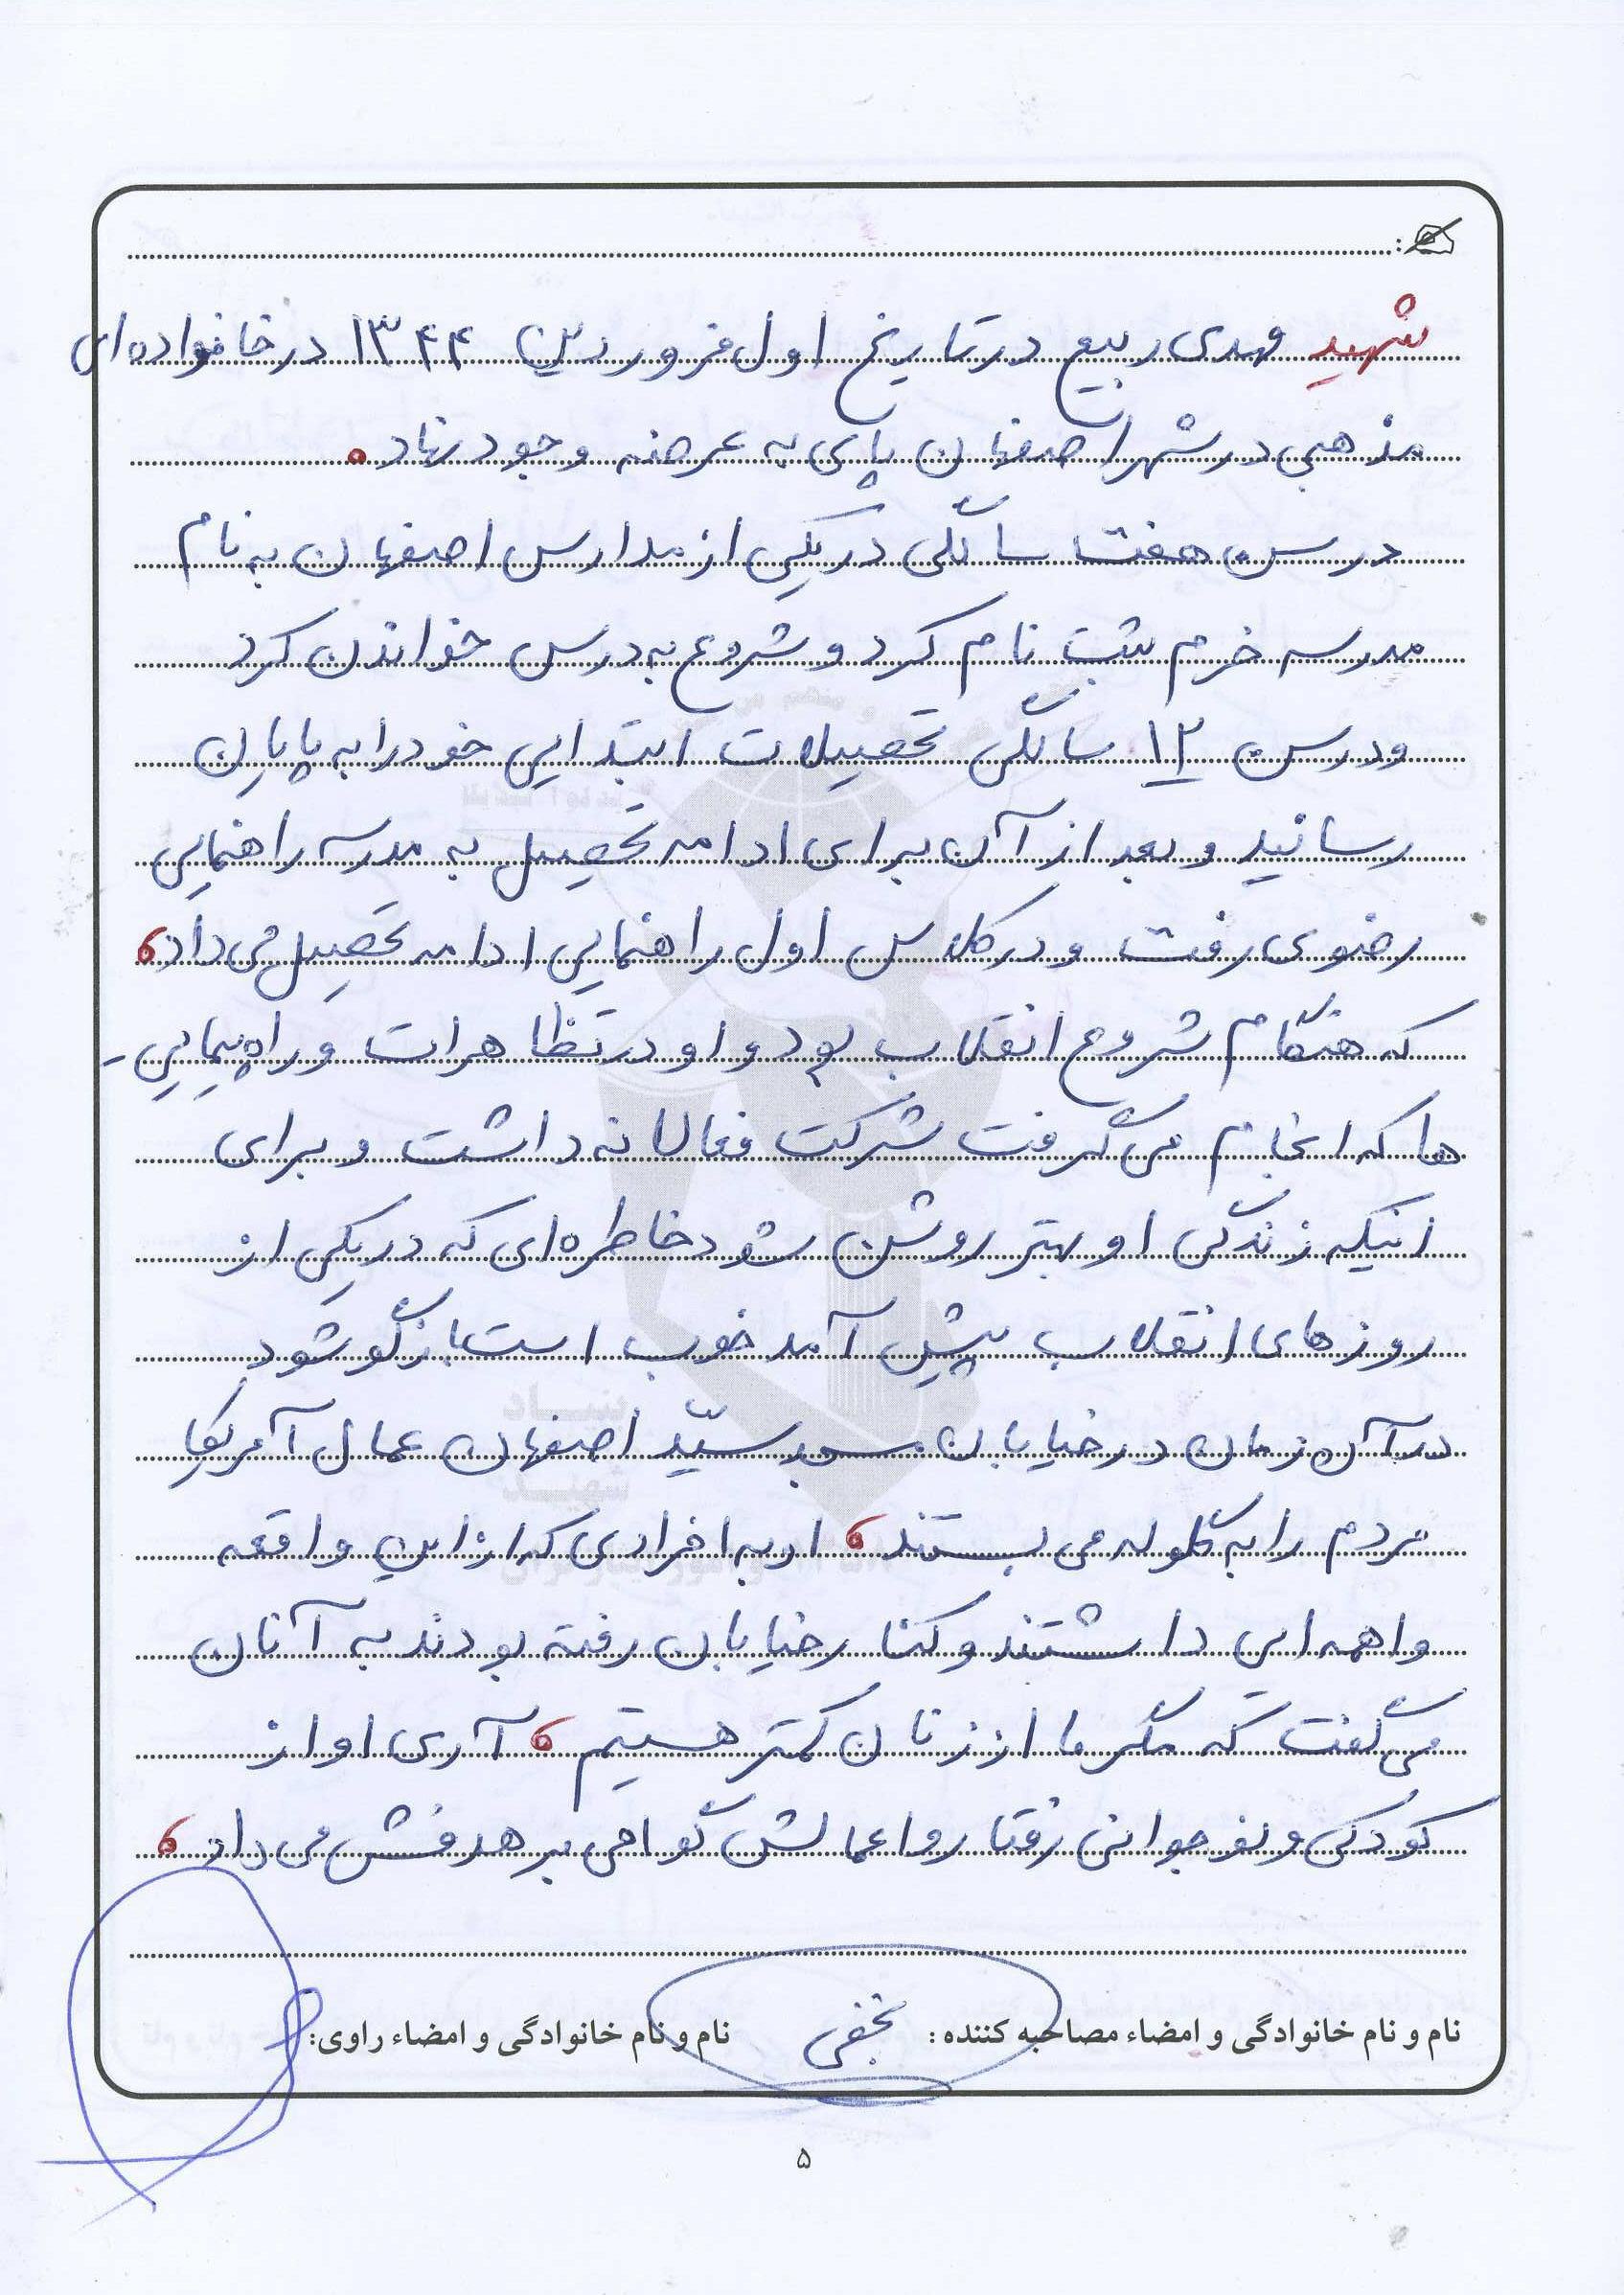 شهید مهدی ربیع در تاریخ اول فروردین ۱۳۴۴ در خانواده ای
مذهبی در شهر اصفهان پای به عرصه وجود نهاد .
در سن هفت سالگی در یکی از مدارس اصفهان به نام
مدرسه خرم ثبت نام کرد و شروع به درس خواندن کرد
و در سن ۱۲ سالگی تحصیلات ابتدایی خود را به پایان
رسانید و بعد از آن برای ادامه تحصیل به مدرسه راهنمایی
رضوی رفت و در کلاس اول راهنمایی ادامه تحصیل می داد ،
که هنگام شروع انقلاب بود و او در تظاهرات و راه پیمایی -
ها که انجام می گرفت شرکت فعالانه داشت و برای
اینکه زندگی او بهتر روشن شود خاطره ای که در یکی از
روزهای انقلاب پیش آمد خوب است بازگو شود
در آن زمان در خیابان مسجد سیّد اصفهان عمال آمریکا
مردم را به گلوله می بستند ، او به افرادی که از این واقعه
واهمه ایی داشتند و کنار خیابان رفته بودند به آنان
می گفت که مگر ما از زنان کمتر هستیم ، آری او از
کودکی و نوجوانی رفتار و اعمالش گواهی بر هدفش می داد ،
نام و نام خانوادگی و امضاء مصاحبه کننده : نجفی
نام و نام خانوادگی و امضاء راوی:
۵
بنیاد
شهید